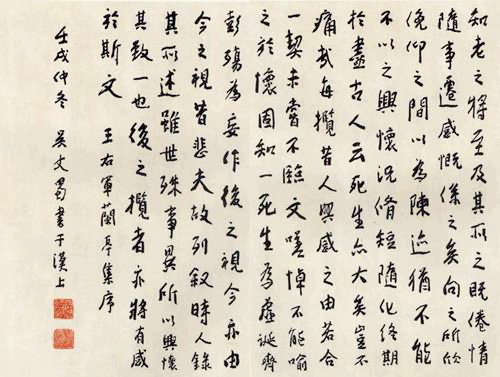 知老之將至及其所之既倦情
隨事遷感慨係之矣向之所欣
俛仰之間以為陳迹猶不能
不以之興懷況脩短隨化終期
於盡古人云死生亦大矣豈不
痛哉每攬昔人興感之由若合
一契未嘗不臨文嗟悼不能喻
之於懷固知一死生為虛誕齊
彭殤為妄作後之視今亦由
今之視昔悲夫故列敘時人錄
其所述雖世殊事異所以興懷
其致一也後之攬者亦將有感
於斯文 王右軍蘭亭集序
壬戌仲冬 吳丈蜀書于漢上